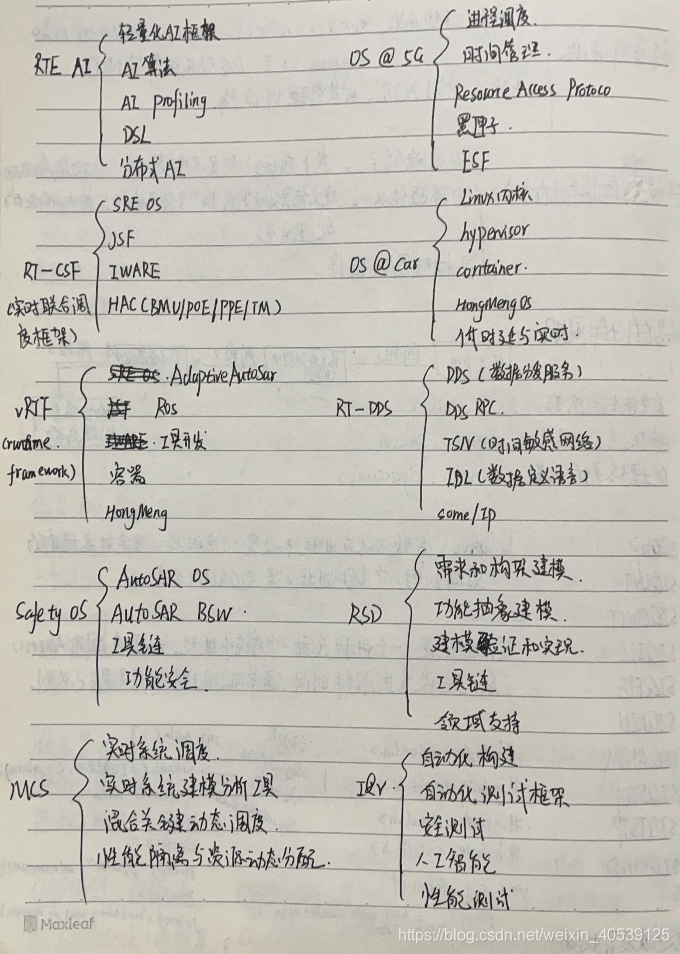 RTE AI
轻量化AI框架
AI算法
AI profiling
DSL
分布式AI
OS @ 5G
进程调度.
时间管理.
Resource Access Protoco
黑匣子.
ESF
RT-CSF
(实时联合调
度框架)
SRE OS
JSF
IWARE
HAC(BMU/POE/PPE/TM)
OS @ Car
Linux内核
hypervisor
container.
HongMeng OS
低时延与实时.
vRTF
(runtime
framework)
AdaptiveAutoSar
Ros
工具开发
容器
HongMeng
RT-DDS
DDS (数据分发服务)
DDS RPC.
TSN (时间敏感网络)
IDL (数据定义语言)
some/IP
Safety OS
AutoSAR OS
AUTOSAR BSW.
工具链
功能安全.
RSD
需求和构架建模.
功能抽象建模.
建模验证和实现.
工具链
领域支持
MCS
实时系统调度.
实时系统建模分析工具
混合关键动态调度.
性能隔离与资源动态分配.
自动化构建
自动化测试框架
安全测试
人工智能
性能测试
Maxleaf
https://blog.csdn.net/weixin_40539125